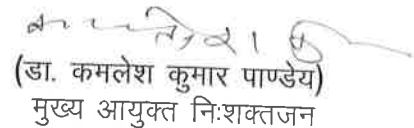 (डा. कमलेश कुमार पाण्डेय)
मुख्य आयुक्त निःशक्तजन